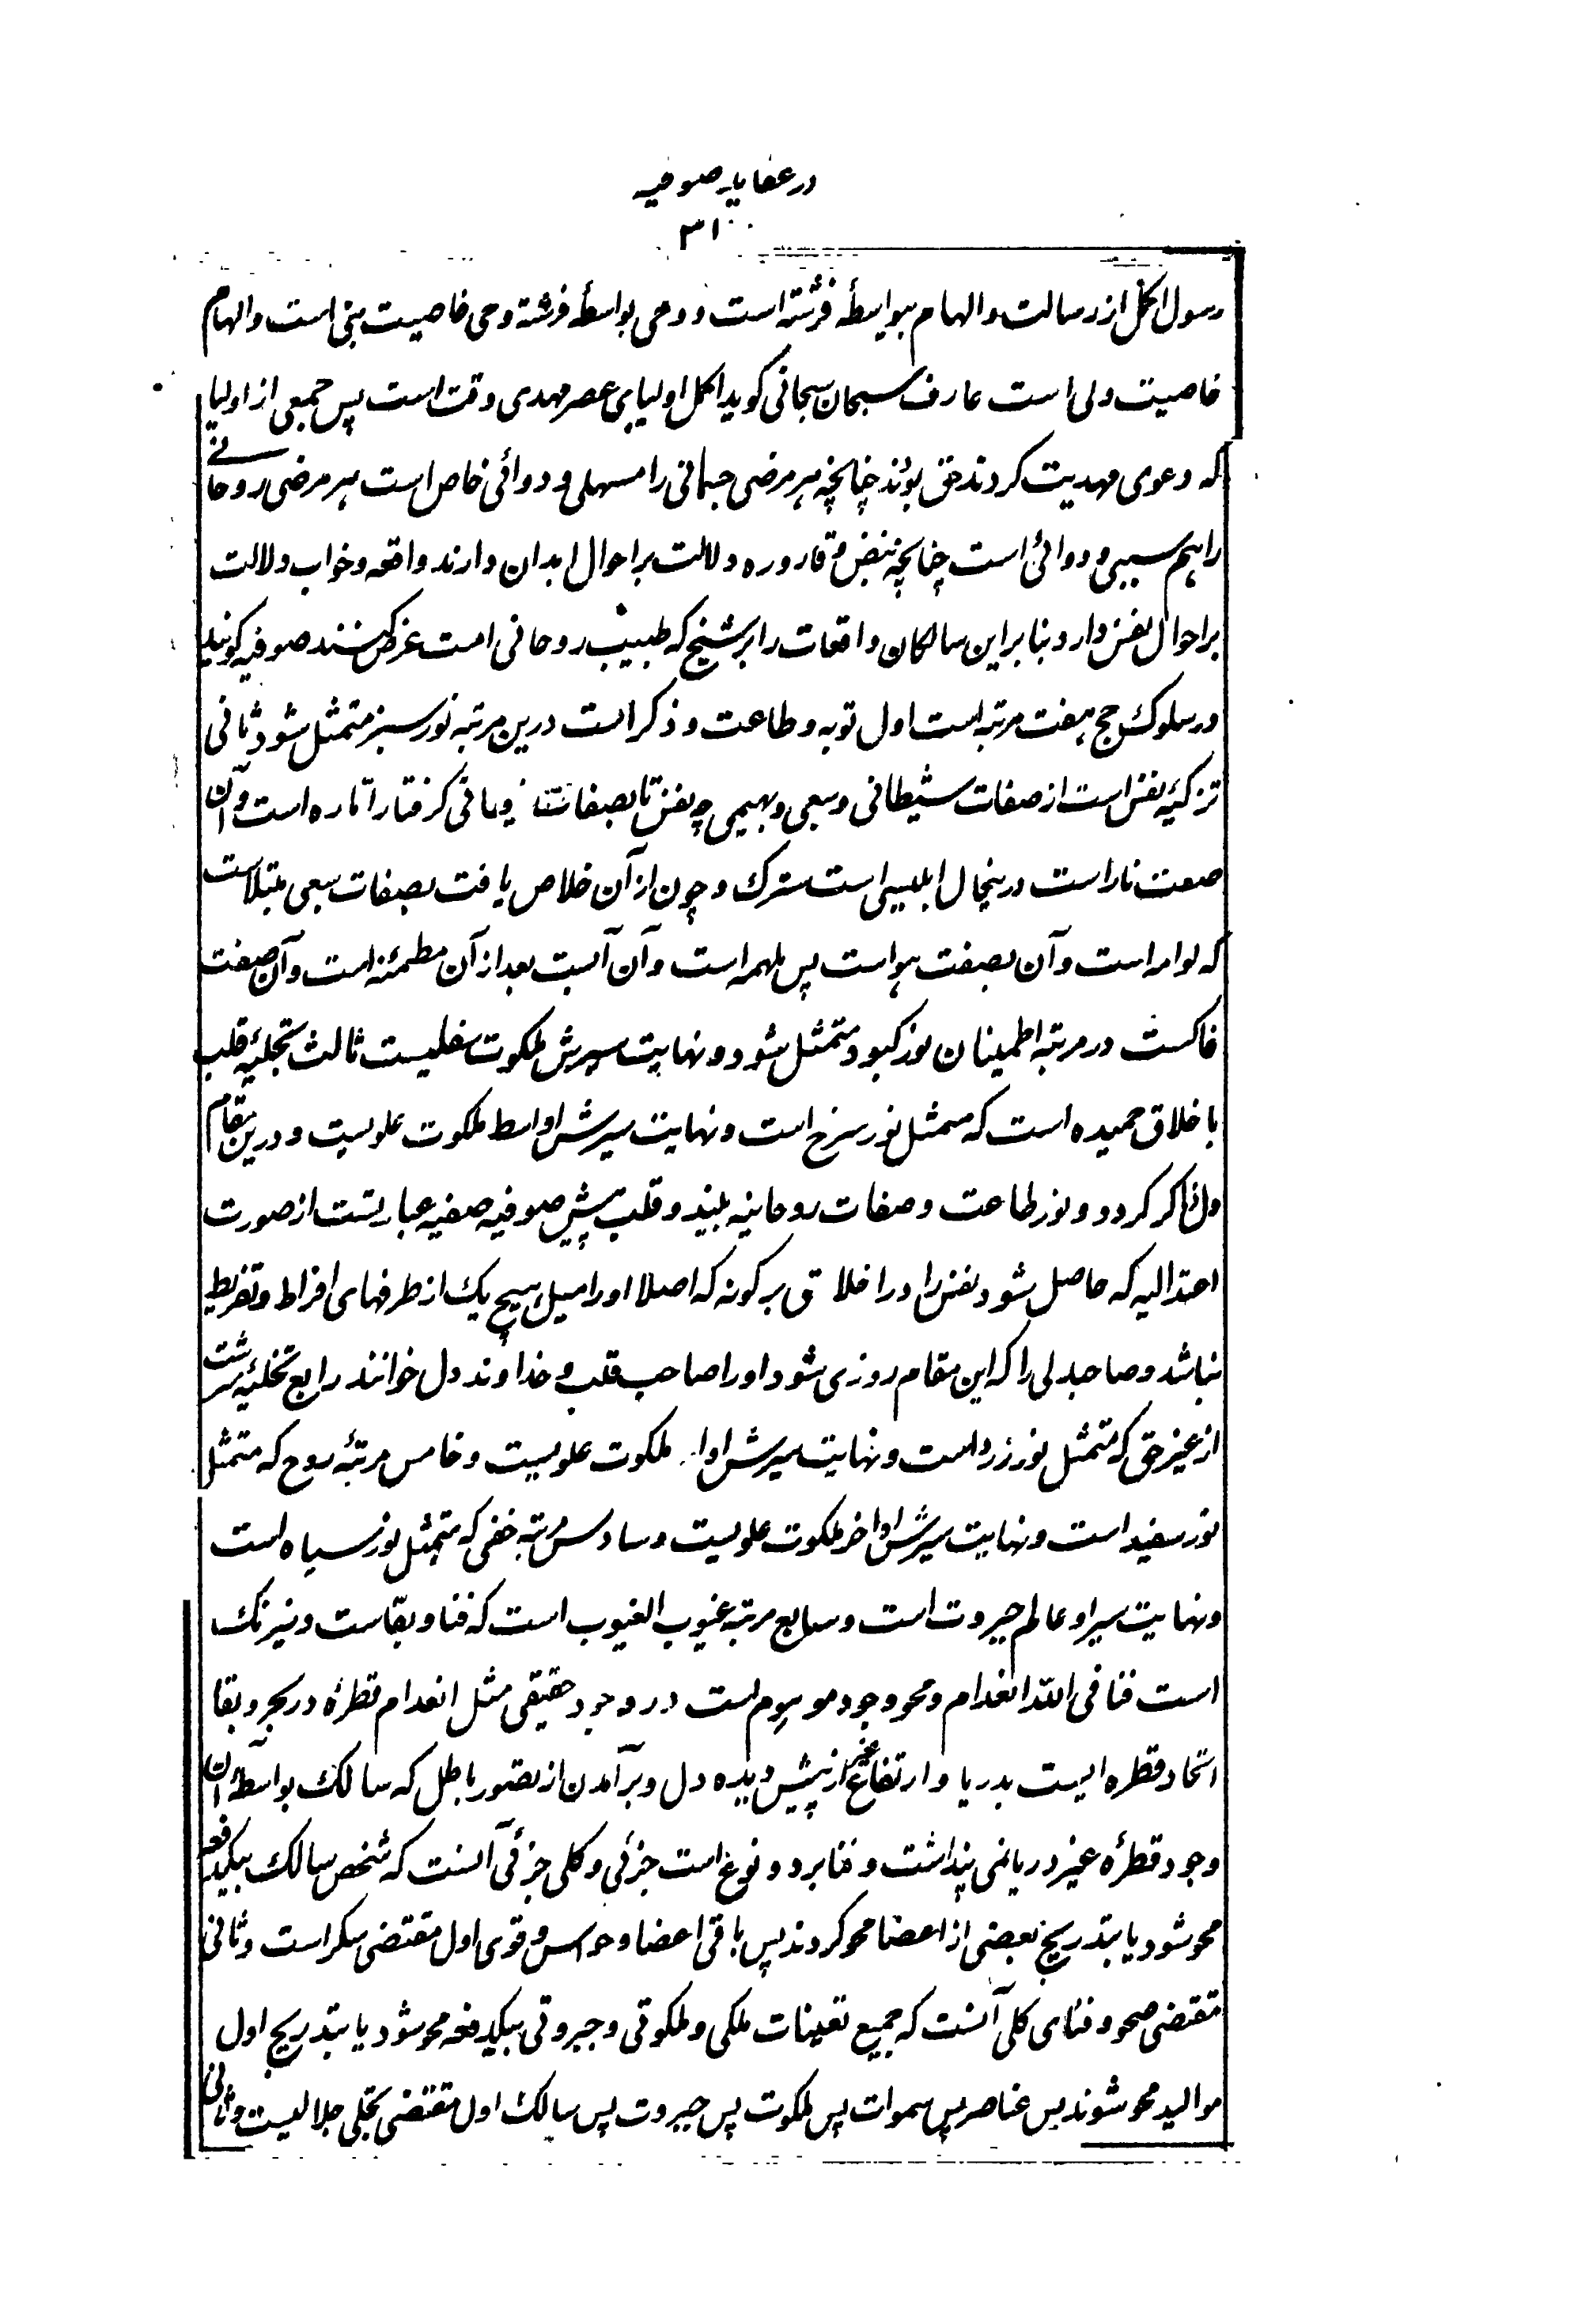 در عقاید صوفیه
۳۱۰
رسول اکمل از رسالت و الهام بیواسطهٔ فرشته است و وحی بواسطهٔ فرشته وحی خاصیت نبی است و الهام
خاصیت ولی است عارف سبحان سبحانی کوید اکمل اولیای عصر مهدی وقت است پس جمعی از اولیا
که دعوی مهدیت کردند حق بودند چنانچه هر مرضی جسمانی را مسهلی و دوائی خاص است هر مرضی روحانی
را هم سببی و دوائی است چنانچه نبض و قاروره دلالت بر احوال ابدان دارند واقعه و خواب دلالت
بر احوال نفس دارد بنا بر این سالکان واقعات را بر شیخ که طبیب روحانی است عرض کنند صوفیه کویند
در سلوک حج هفت مرتبه است اول توبه و طاعت و ذکر است درین مرتبه نور سبز متمثل شود ثانی
تزکیهٔ نفس است از صفات شیطانی و سبعی و بهیمی چه نفس تا بصفات کرفتار اماره است و آن
صفت نار است درینحال ابلیسی است مشرک و چون از آن خلاص یافت بصفات سبعی مبتلاست
که لوامه است و آن بصفت هواست پس ملهمه است و آن آبست بعد از آن مطمئنه است و آن صفت
خاکست در مرتبه اطمینان نور کبود متمثل شود و نهایت سیرش ملکوت سفلیست ثالث تجلیهٔ قلب
باخلاق حمیده است که متمثل نور سرخ است و نهایت سیرش اواسط ملکوت علویست و درین مقام
دل ذاکر کردد و نور طاعت و صفات روحانیه بیند و قلب پیش صوفیه صفیه عبارتست از صورت
اعتدالیه که حاصل شود نفس را در اخلاق بر کونه که اصلا او را میل بهیچ یک از طرفهای افراط و تفریط
نباشد و صاحبدلی را که این مقام روزی شود او را صاحب قلب و خداوند دل خوانند رابع تخلیهٔ سرشت
از غیر حق که متمثل نور زرد است و نهایت سیرش ملکوت علویست و خامس مرتبهٔ روح که متمثل
نور سفید است و نهایت سیرش اواخر ملکوت علویست و سادس مرتبه خفی که متمثل نور سیاه است
و نهایت سیر او عالم جبروت است و سابع مرتبه غیوب الغیوب است که فنا و بقاست و نیرنک
است فنا فی الله انعدام و محو وجود موهوم است در وجود حقیقی مثل انعدام قطره در بحر و بقا
اتحاد قطره ایست بدریا و ارتفاع غیر از پیش دیده دل و برآمدن از تصور باطل که سالک بواسطهٔ آن
وجود قطرهٔ غیر دریا نمی پنداشت و فنا بر دو نوع است جزئی و کلی جزئی آنست که شخص سالک بیکدفعه
محو شود یا بتدریج بعضی از اعضا محو کردند پس باقی اعضا و حواس و قوی اول مقتضی سکر است و ثانی
مقتضی صحو و فنای کلی آنست که جمیع تعینات ملکی و ملکوتی و جبروتی بیکدفعه محو شود یا بتدریج اول
موالید محو شوند پس عناصر پس سموات پس ملکوت پس جبروت پس سالک اول مقتضی تجلی جلالیست و ثانی